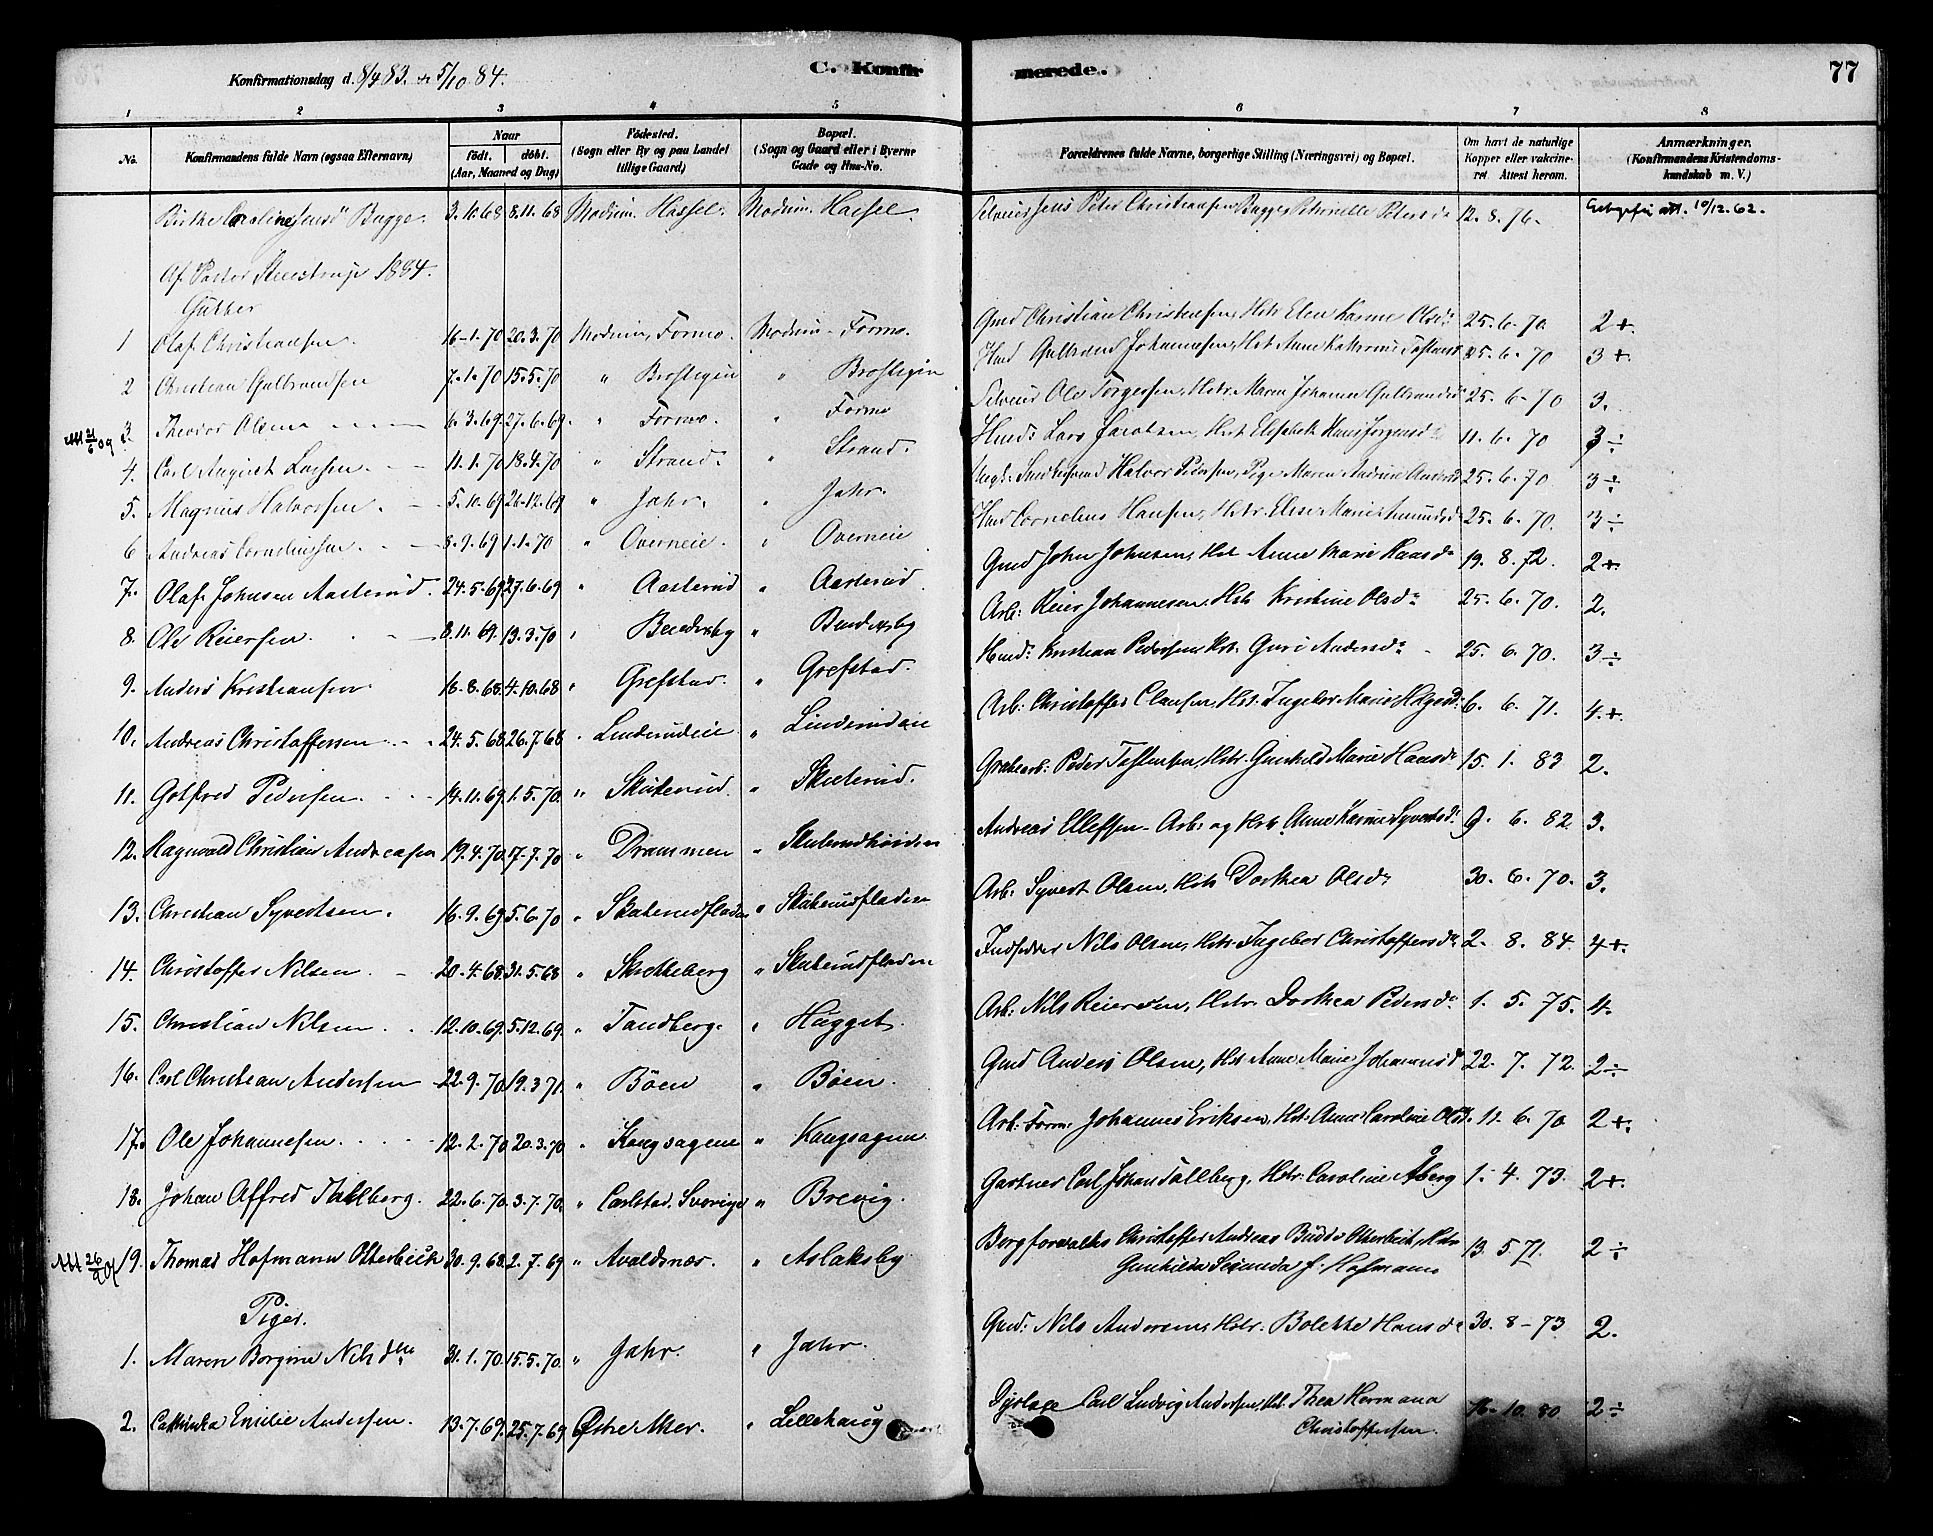 Konfirmationsdag d. 8/4 83. & 5/10 84.
C. Konfirmerede.
77
1 2 3 4 5 6 7 8
No.
Konfirmandens fulde Navn (ogsaa Efternavn)
Naar
født. døbt.
(Aar, Maaned og Dag)
Fødested.
(Sogn eller By og paa Landet tillige Gaard)
Bopæl.
(Sogn og Gaard eller i Byerne Gade og Hus-No.
Forældrenes fulde Navne, borgerlige Stilling (Næringsvei) og Bopæl.
Om havt de naturlige Kopper eller vakcineret. Attest herom.
Anmærkninger.
(Konfirmandens Kristendomskundskab m. V.)
Birthe Caroline Jensd Bugge. 3.10.68 8.11.68 Modum. Hassel. Modum. Hassel. Jens Peter Christiansen Bugge, Petrinelle Petersd 12.8.76. 10/12.62.
Af Pastor Steenstrup 1884.
Gutter
1 Olaf Christiansen. 16-1.70 20.3.70 Modum, Formo. Modum - Formo. Gmd Christian Christensen, Hstr Elen Karine Olsd. 25-6-70. 2+.
2 Christian Gulbrandsen 7.1.70 15.5.70 " Brostigen " Brostigen Hmd Gulbrand Johannesen, Hst Anne Kathrine 25.6-70 3+
Att 21/6 09 3. Theodor Olsen 6.3.69. 27.6.69. " Formo. " Formo Ole Torgersen, Hstr. Maren Johanne Gulbrandsd 25.6-70 3.
4. Carl August Larsen. 11.1.70 18.4.70 " Strand. " Strand. Hmd. Lars Jacobsen, Hst Elisabeth Hans Jørgensd 11.6.70 3÷
5. Magnus Halvorsen. 5.10.69 26.12.69 " Jahr. " Jahr. Halvor Pedersen, Pige Maren Andrine Andersd 25.6.70 3÷
6 Andreas Corneliussen. 8.9.69 1.1.70 " Overneie. " Overneie Hmd Cornelius Hansen, Hstr. Elise Marie Amundsd 25.6.70. 3÷
7. Olaf Johnsen Aasterud. 24.5.69 27.6.69 " Aasterud " Aasterud Gmd John Johnsen, Hst Anne Marie Hansd 19.8.72. 2+
8. Ole Reiersen. 8.11.69. 13.3.70 " Bendixby " Bendixby Arb: Reier Johannesen, Hstr Kristine Olsd. 25.6.70. 2.
9. Anders Kristiansen. 16.8.68 4.10.68 " Grefstad. " Grefstad. Hmd. Kristian Pedersen, Hst. Guri Andersd. 25.6.70. 3÷
10. Andreas Christoffersen. 24.5.68 26.7.68 " Linderudeie " Linderudeie Arb: Christoffer Clausen, Hst. Ingebor Marie Helgesd. 6.6.71. 4+.
11. Gotfred Pedersen. 14.11.69 1.5.70 " Skuterud. " Skuterud. Peder Toftensen, Hstr. Gunhild Marie Hansd. 15.1.83 2.
12. Ragnvald Christian Andreasen 19.4.70 17-7.70 " Drammen " Skuterudhøiden Andreas Ellefsen - Arb: og Hst Anne Karine Syvertsd. 9.6.82 3.
13. Christian Syvertsen. 16.9.69 5.6.70 " Skuterudfladen " Skuterudfladen Arb: Syvert Olsen, Hstr Dorthea Olsd. 30.6.70. 3.
14. Christoffer Nilsen. 20.4.68 31.5.68 " Skretteberg " Skuterudfladen Nils Olsen, Hstr. Ingebor Christoffersd. 2.8.84. 4+.
15. Christian Nilsen. 12.10.69. 5.12.69. " Tandberg. " Hugget. Arb: Nils Reiersen, Hstr. Dorthea Pedersd. 1.5.75. 4.
16. Carl Christian Andersen 22.9.70 19.3.71. " Böen " Böen. Gmd Anders Olsen, Hst. Anne Marie Johannesd 22.7.72. 2÷
17. Ole Johannesen. 12.2.70 20.3.70 " Kongsagene " Kongsagene Arb: Form. Johannes Eriksen, Hst: Anne Caroline Olsd. 11.6.70 2+.
18. Johan Alfred Tallberg. 22.6.70. 3.7.70. " Carlstad. Sverige " Brevig. Gartner Carl Johan Tallberg, Hstr. Caroline Åberg 1.4.73. 2+.
Att 26/4 01 19. Thomas Hofmann Otterbech 30.9.68. 2.7.69 " Avaldsnæs. " Aslaksby. Bergforvalter Christoffer Andreas Budde Otterbech, Hstr 13.5.71. 2÷
Gunhilda Secunda f. Hofmann
Piger.
1. Maren Borgine Nilsdtr 31.1.70. 15.5.70. " Jahr. " Jahr. Gmd: Nils Andersen, Hstr. Bolette Hansd. 30.8-73 2.
2. Cathinka Emilie Andersen. 13.7.69. 25.7.69 Østre Aker. " Lillehaug Carl Ludvig Andersen, Hst. Thea Hermana 16.10.80 2÷
Christoffersen.